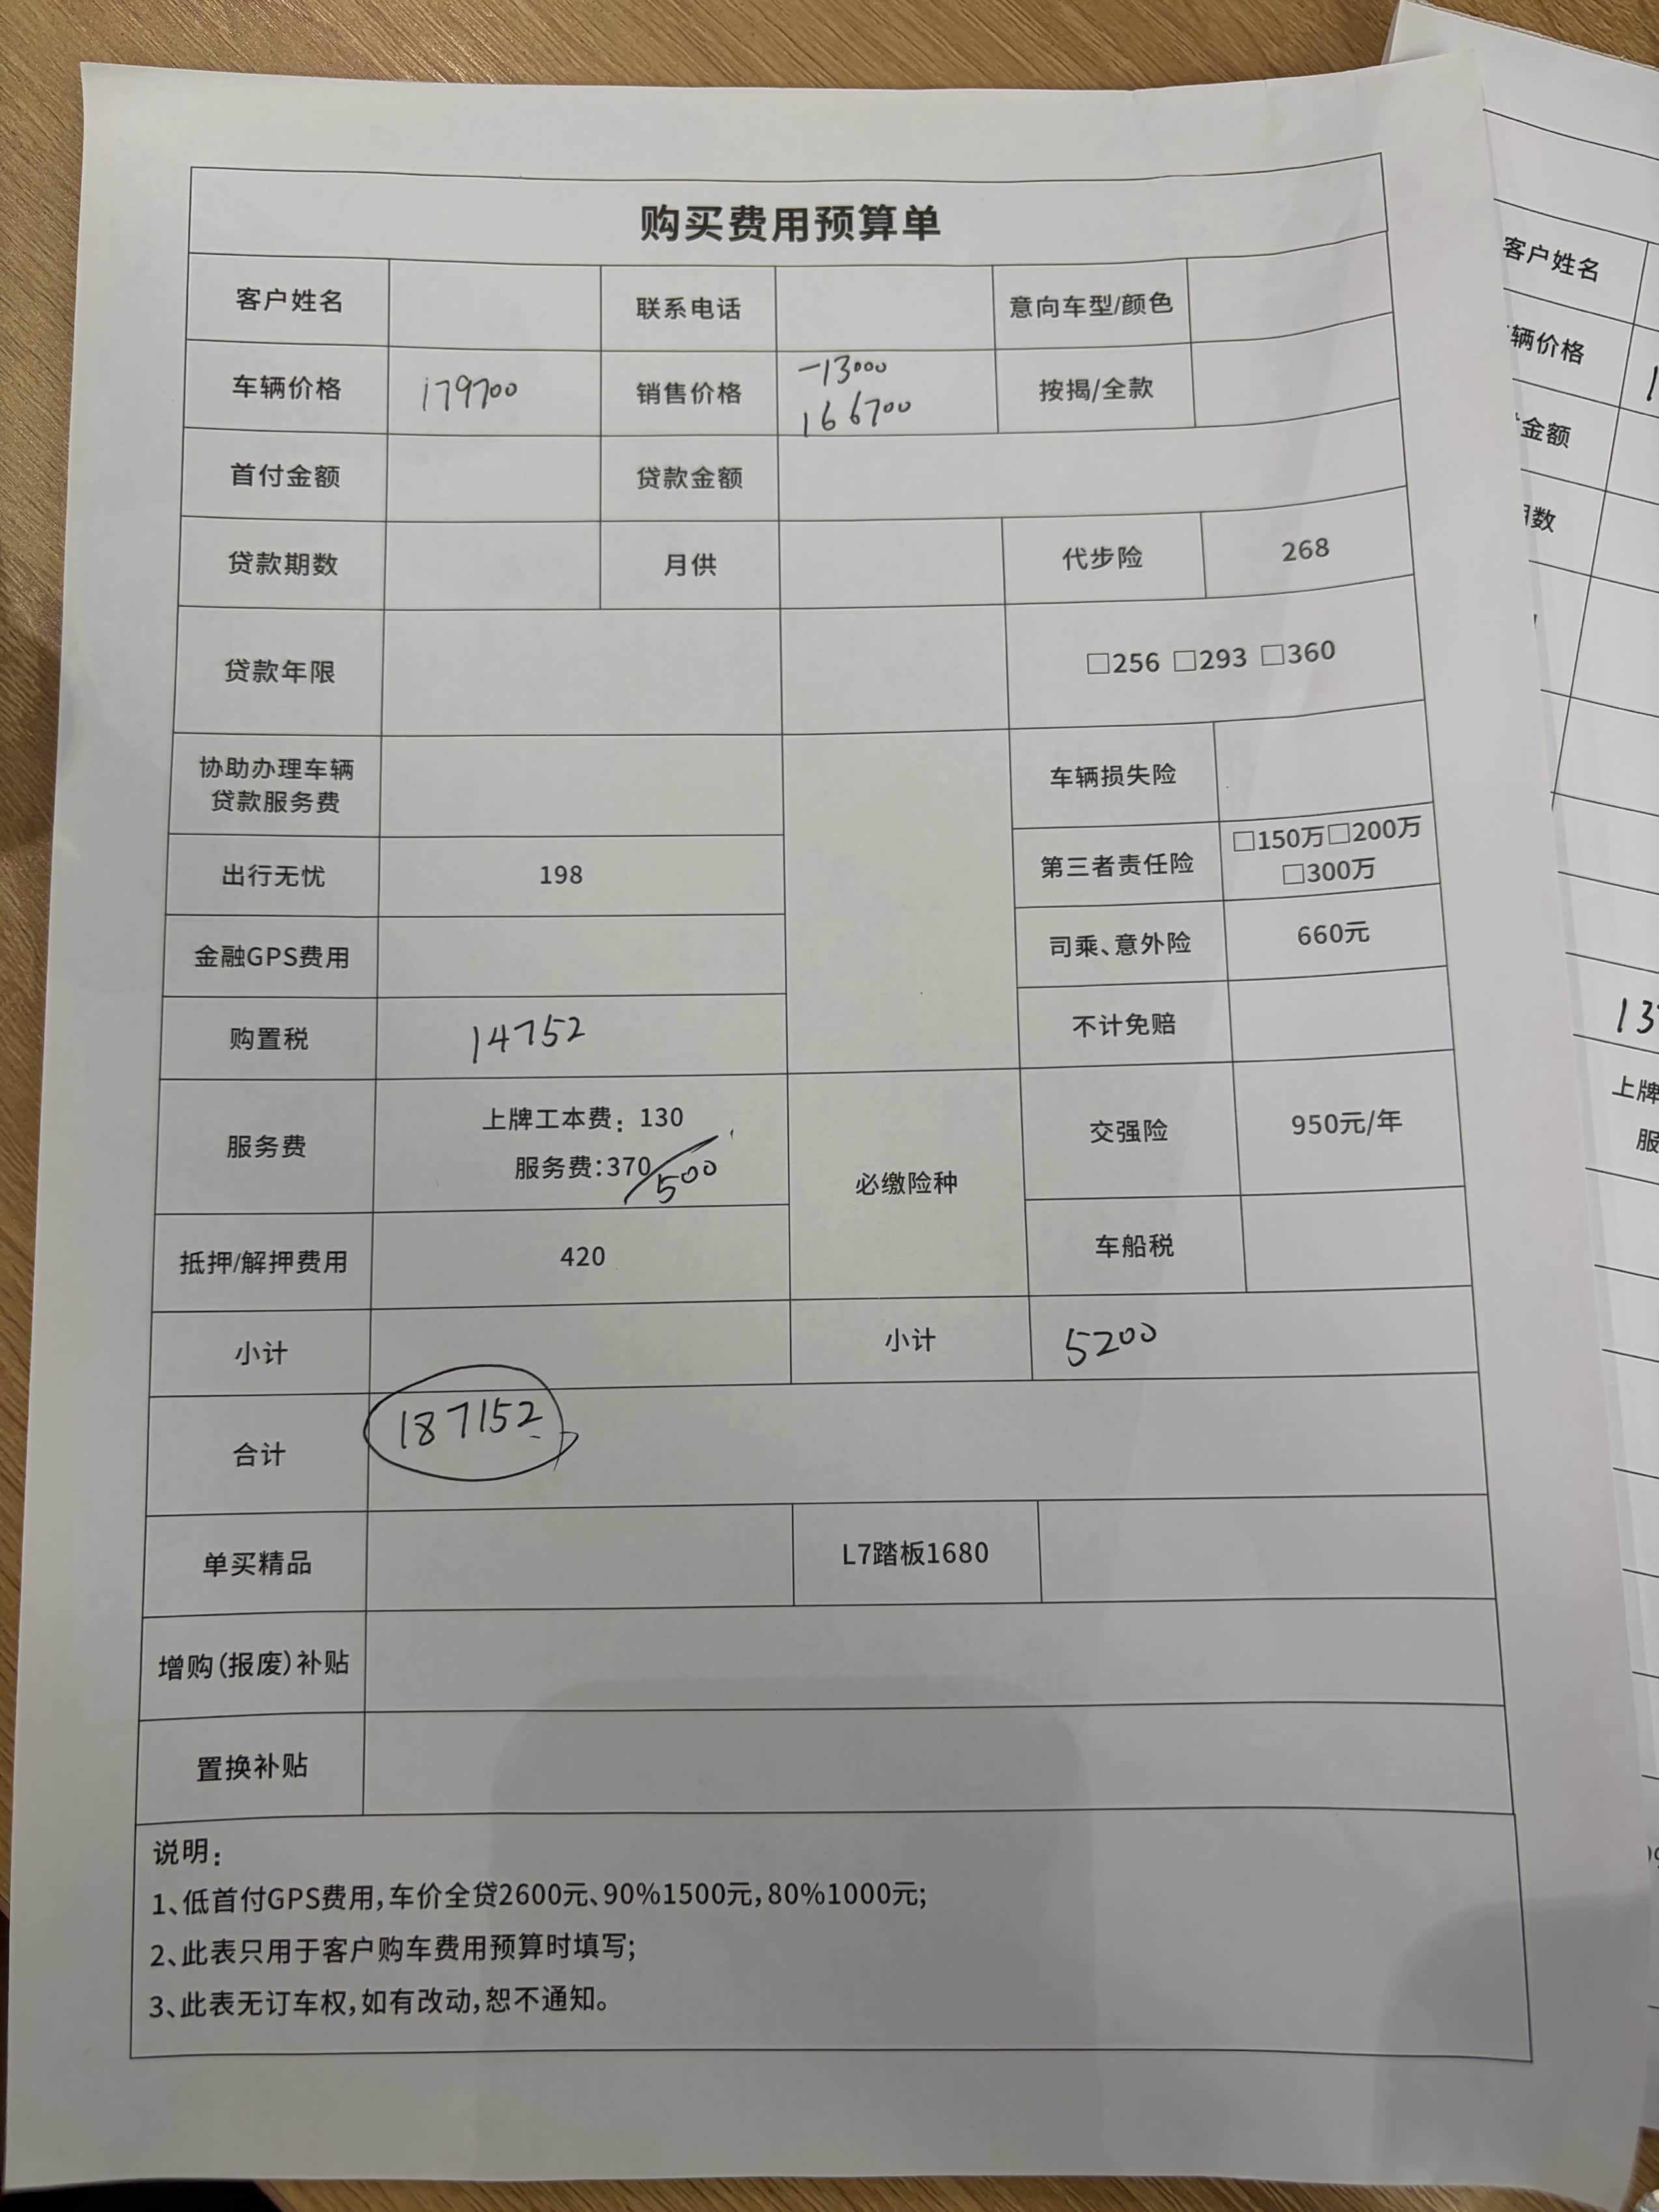 购买费用预算单
客户姓名 联系电话 意向车型/颜色
车辆价格 179700 销售价格 -13000 按揭/全款
166700
首付金额 贷款金额
贷款期数 月供 代步险 268
贷款年限 □256 □293 □360
协助办理车辆
贷款服务费
车辆损失险
出行无忧 198
第三者责任险 □150万□200万
□300万
金融GPS费用
司乘、意外险 660元
购置税 14752
不计免赔
服务费
上牌工本费：130
服务费:370 500
必缴险种
交强险 950元/年
抵押/解押费用 420
车船税
小计 小计 5200
合计 187152
单买精品 L7踏板1680
增购(报废)补贴
置换补贴
说明：
1、低首付GPS费用,车价全贷2600元、90%1500元,80%1000元;
2、此表只用于客户购车费用预算时填写;
3、此表无订车权,如有改动,恕不通知。
客户姓名
辆价格
金额
数
13
上牌
服